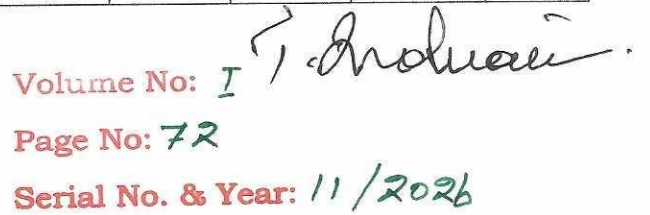 Volume No: I
Page No: 72
Serial No. & Year: 11/2026